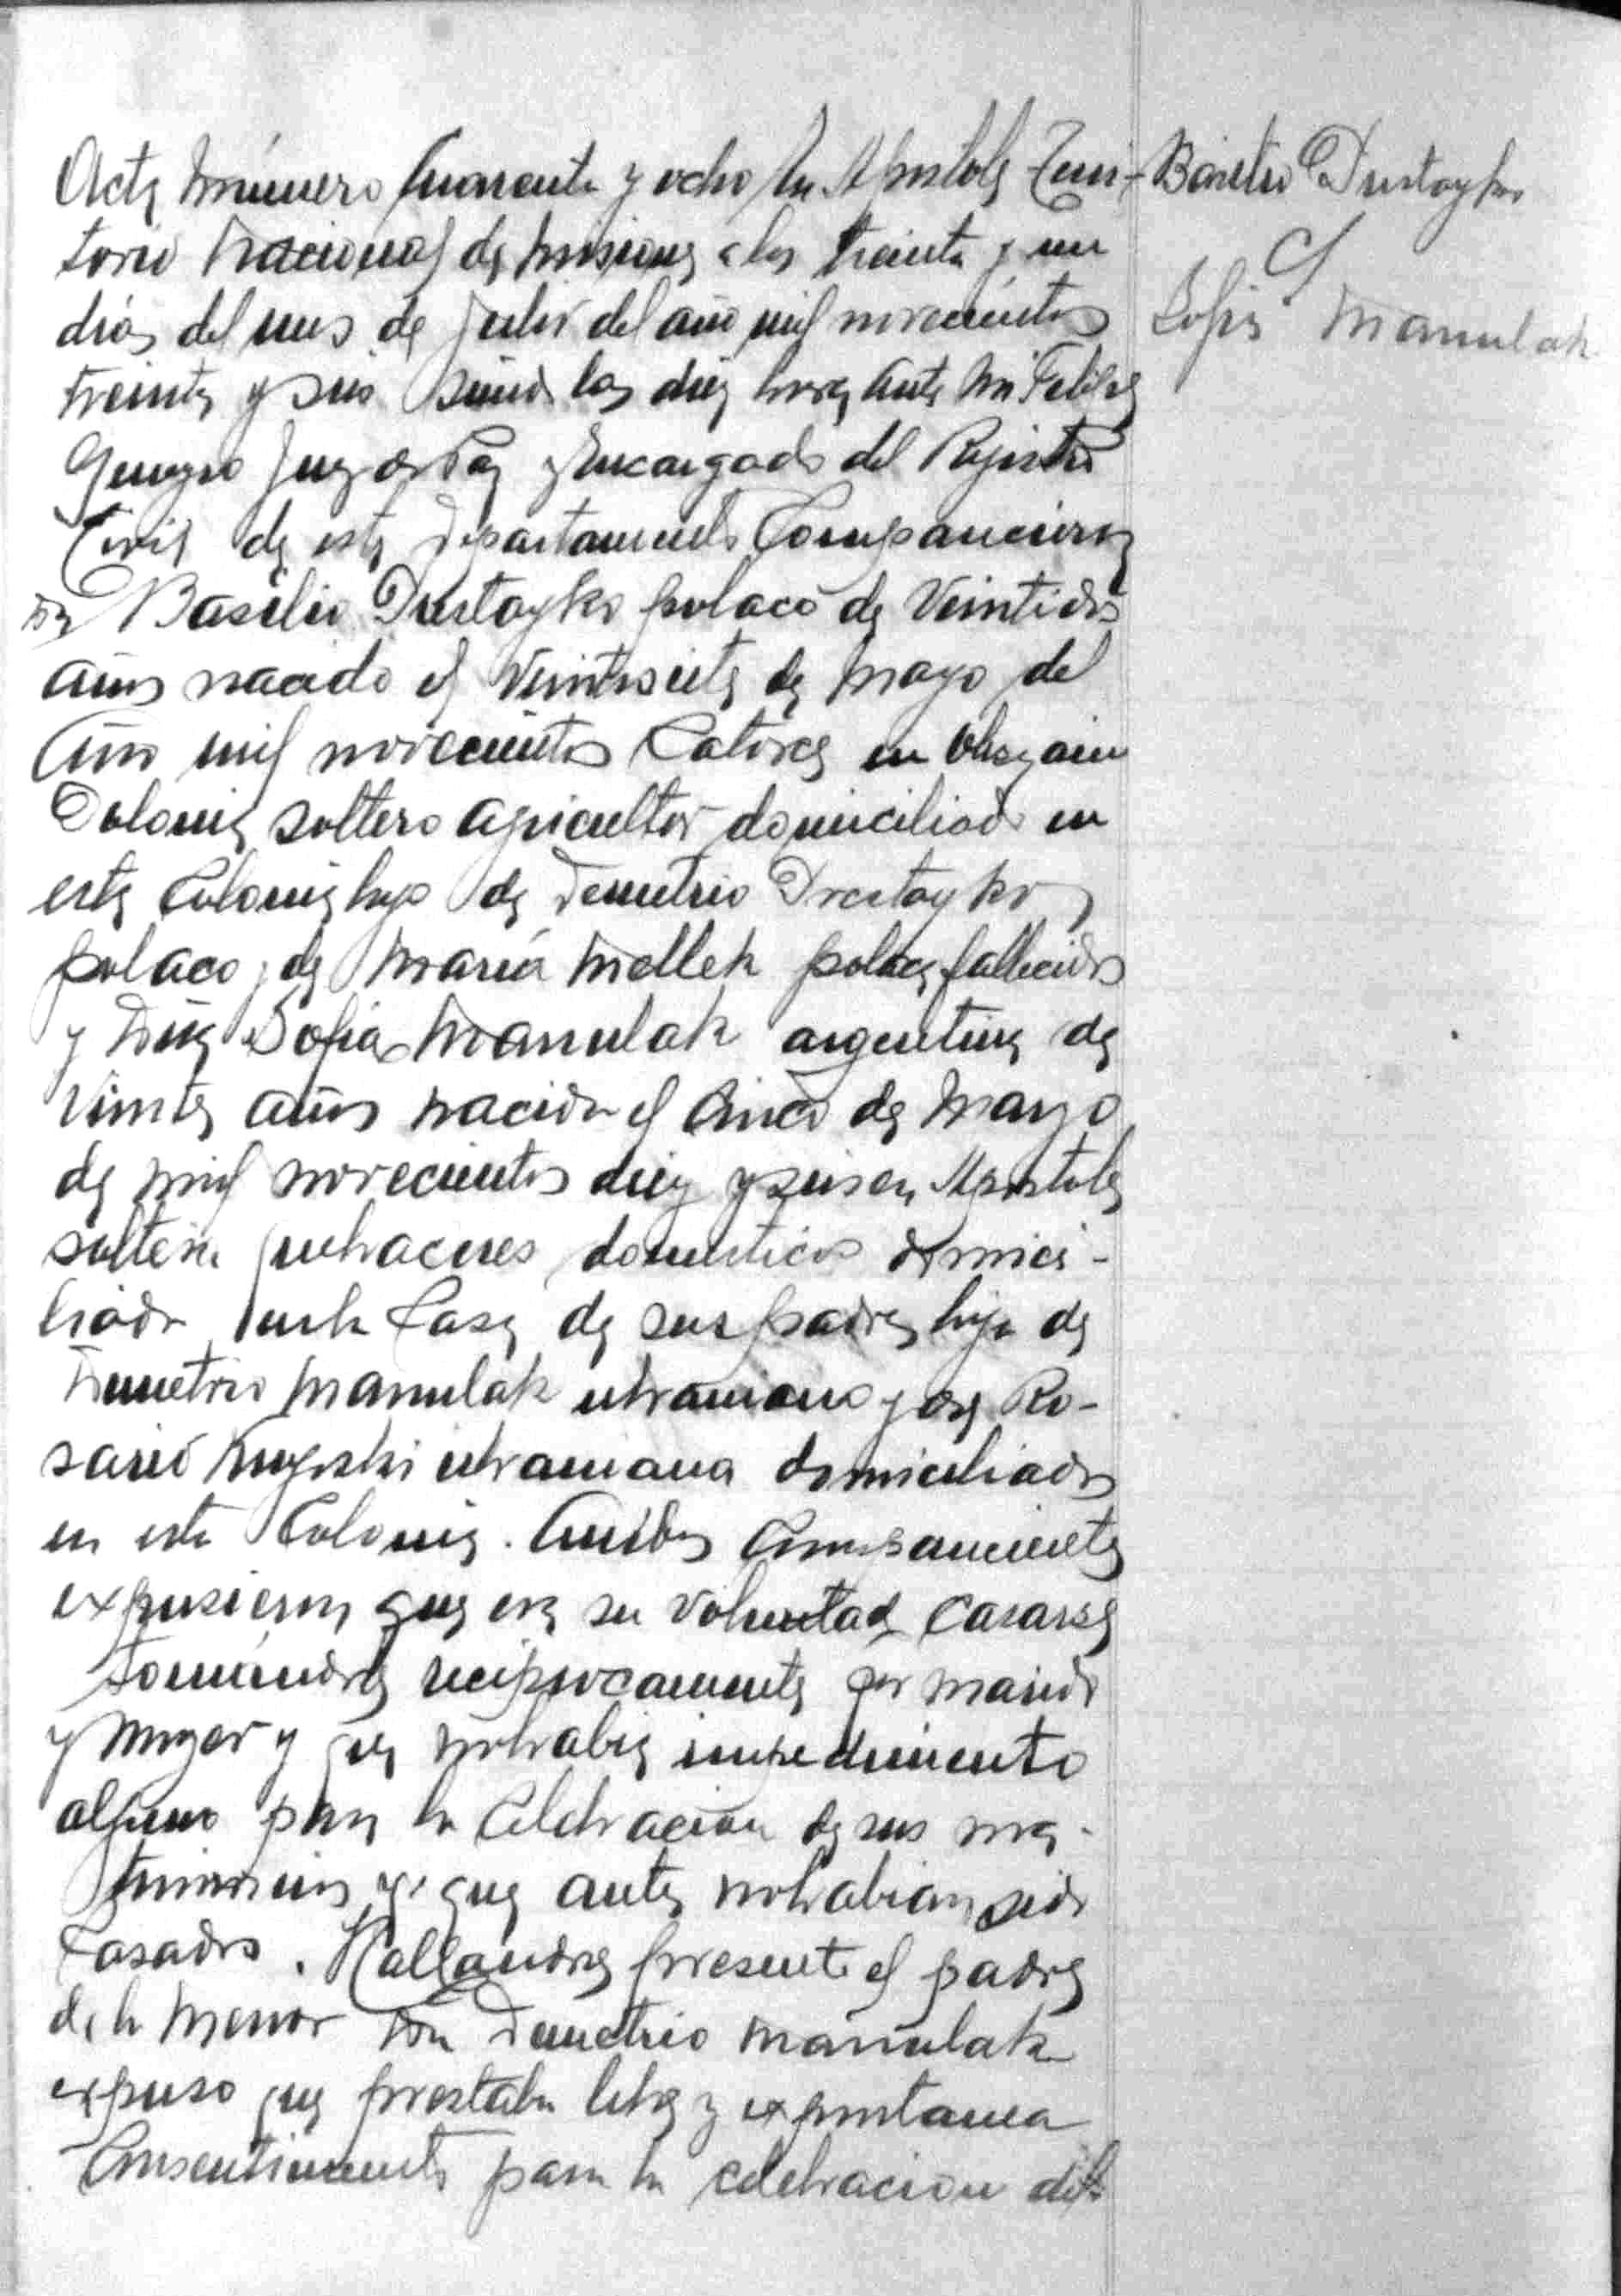 Acta número Cuarenta y ocho En Apostoles Terri-
torio Nacional de Misiones a los treinta y un
dias del mes de Julio del año mil novecientos
treinta y seis siendo las diez horas ante mi Felipe
Juez de Paz y Encargado del Rejistro
Civil de este Departamento Comparecieron
Don Basilio Drestayko polaco de Veintidos
años nacido el Veintisiete de Mayo del
Año mil novecientos Catorce en
Polonia soltero agricultor domiciliado en
esta Colonia hijo de Demetrio Drestayko
polaco y de María Mellek polaca fallecidos
y Doña Sofia Manulak argentina de
Veinte años nacida el Cinco de Marzo
de mil novecientos diez y seis en Apostoles
soltera quehaceres domesticos domici-
liada en la Casa de sus padres hija de
Demetrio Manulak ukraniano y de Ro-
sario ukraniana domiciliados
en esta Colonia. Ambos Comparecientes
expusieron que era su voluntad Casarse
tomándose reciprocamente por marido
y mujer y que no habia impedimento
alguno para la Celebracion de sus ma-
trimonios y que antes no habian sido
Casados. Hallandose presente el padre
de la Menor Don Demetrio Manulak
expuso que prestaba libre y expontanea
Consentimiento para la celebracion del
Drestayko
C
Sofia Manulak